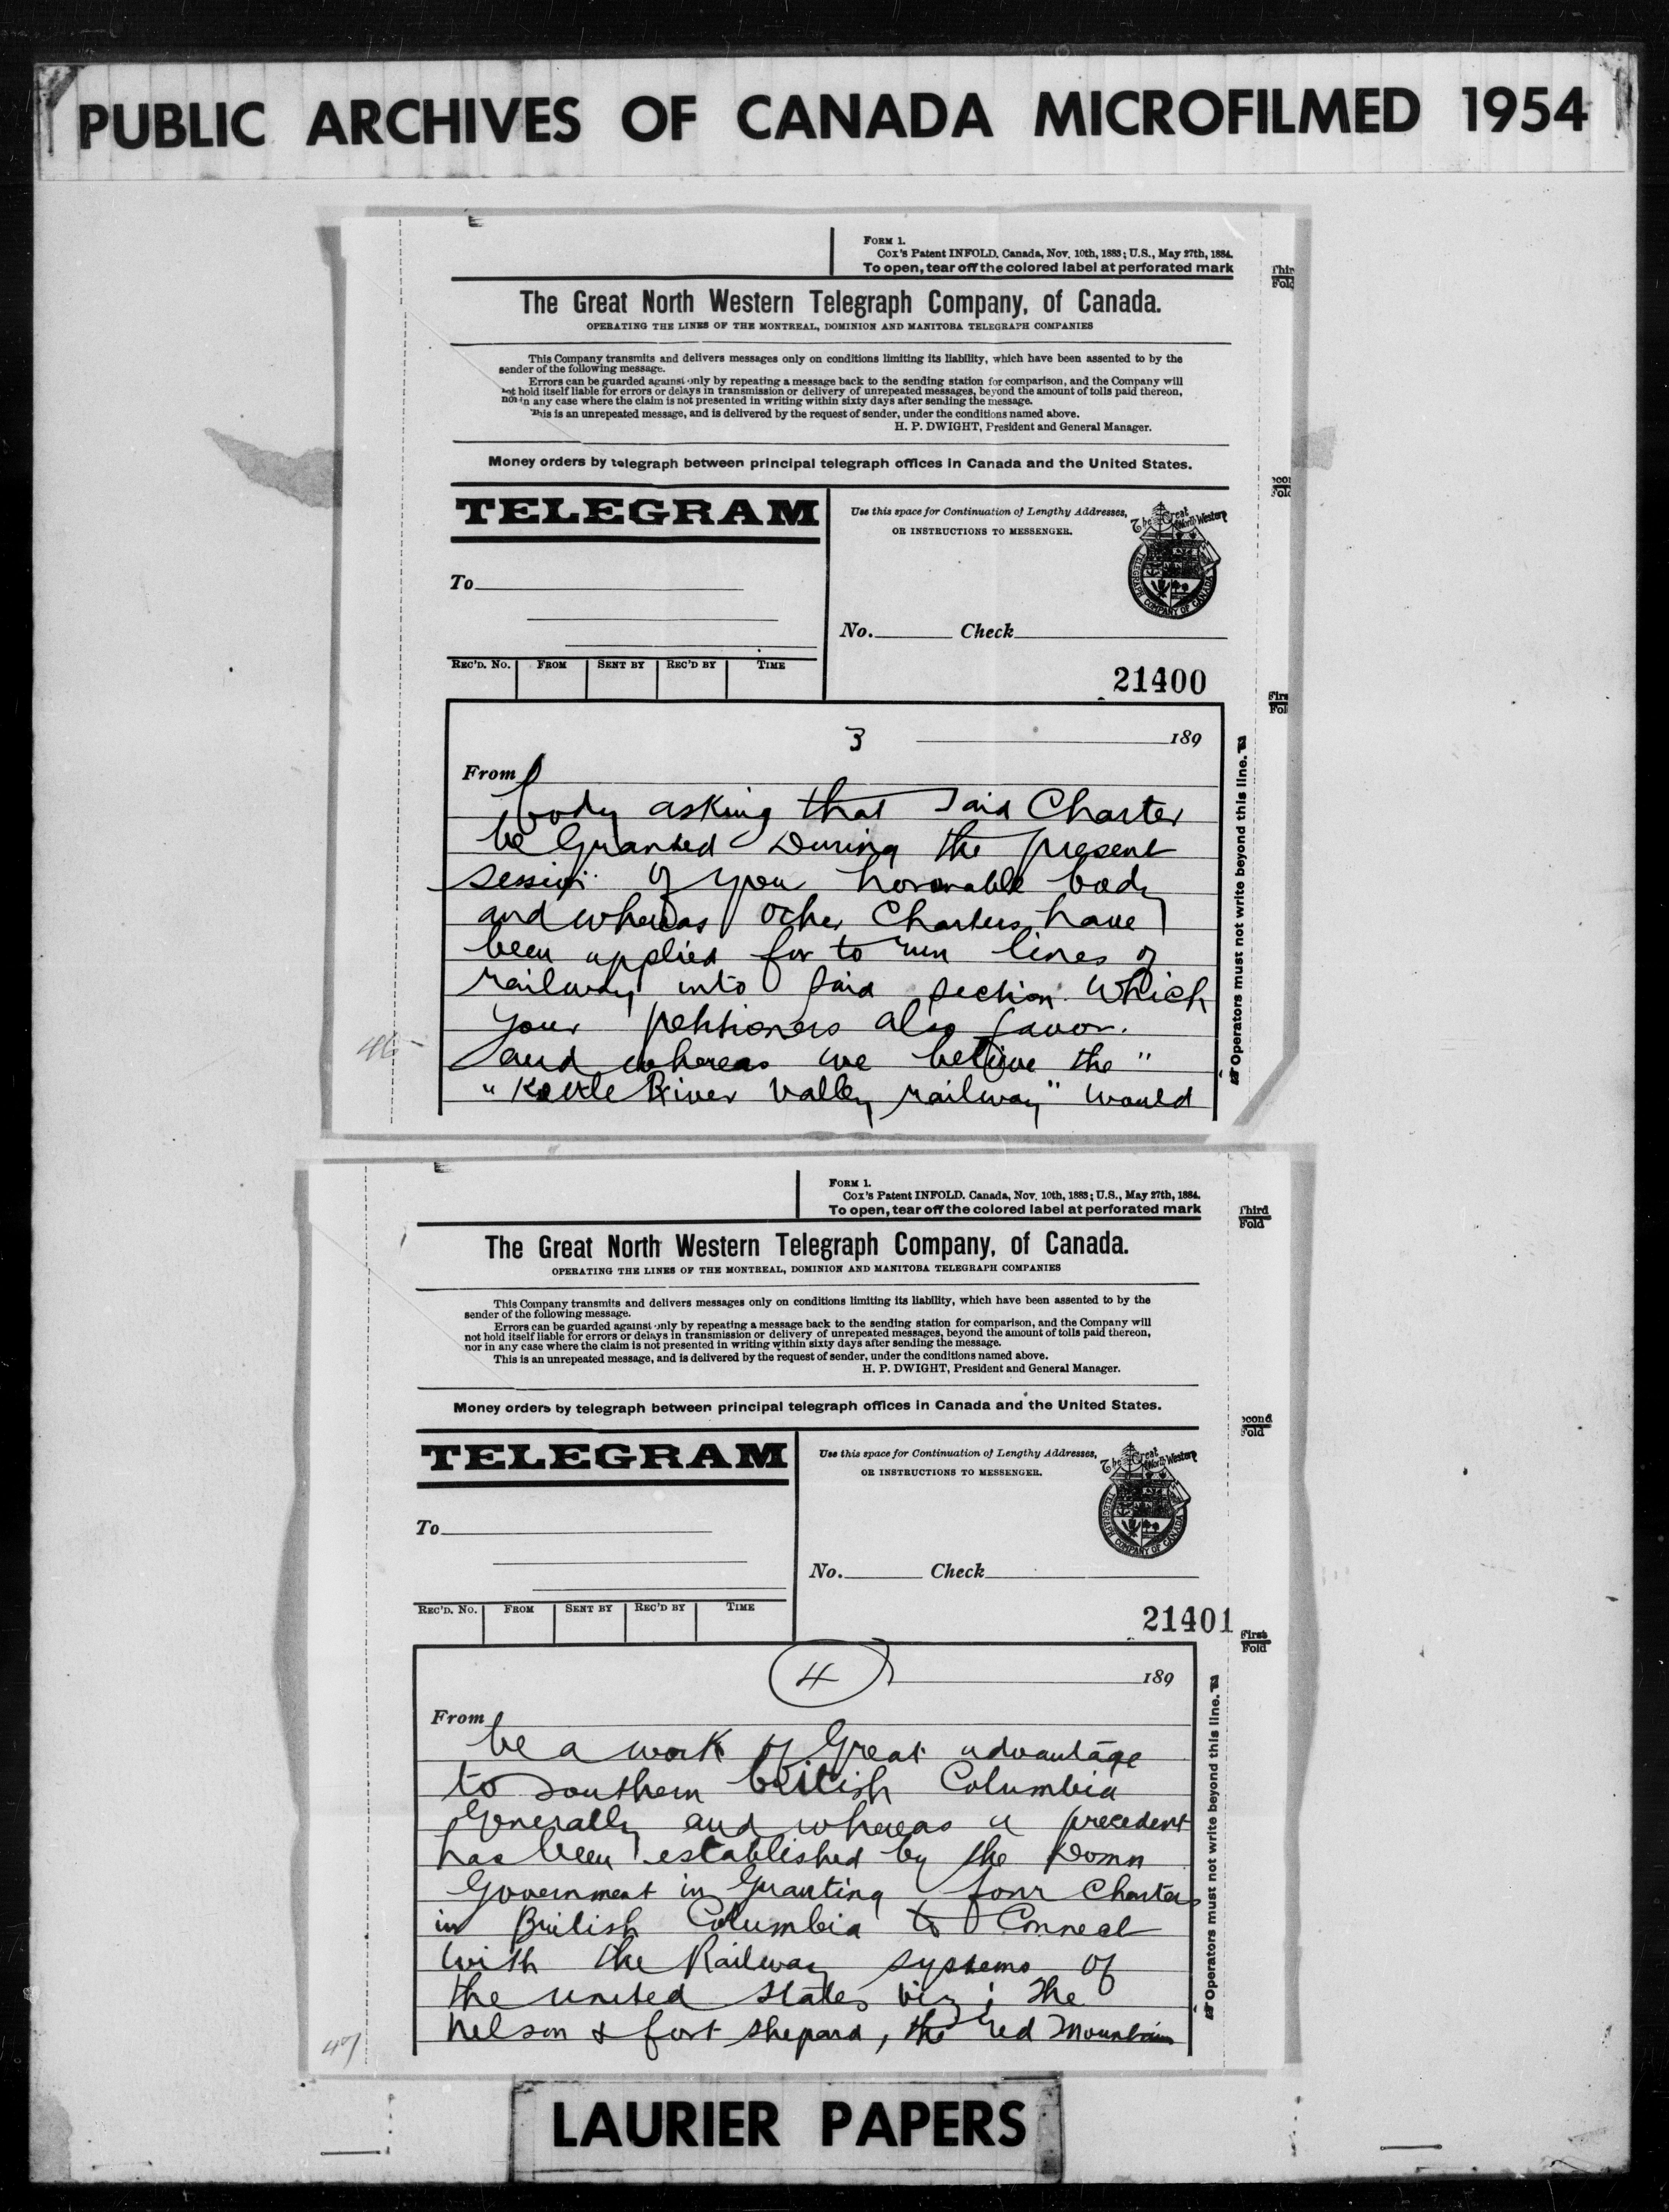 PUBLIC ARCHIVES OF CANADA MICROFILMED 1954
FORM 1.
Cox's Patent INFOLD. Canada, Nov. 10th, 1883; U.S., May 27th, 1884.
To open, tear off the colored label at perforated mark
Third
Fold
The Great North Western Telegraph Company, of Canada.
OPERATING THE LINES OF THE MONTREAL, DOMINION AND MANITOBA TELEGRAPH COMPANIES
This Company transmits and delivers messages only on conditions limiting its liability, which have been assented to by the
sender of the following message.
Errors can be guarded against only by repeating a message back to the sending station for comparison, and the Company will
not hold itself liable for errors or delays in transmission or delivery of unrepeated messages, beyond the amount of tolls paid thereon,
nor in any case where the claim is not presented in writing within sixty days after sending the message.
This is an unrepeated message, and is delivered by the request of sender, under the conditions named above.
H. P. DWIGHT, President and General Manager.
Money orders by telegraph between principal telegraph offices in Canada and the United States.
TELEGRAM
Use this space for Continuation of Lengthy Addresses,
OR INSTRUCTIONS TO MESSENGER.
The Great North Western
TELEGRAPH COMPANY OF CANADA
To
No. Check
REC'D. No. FROM SENT BY REC'D BY TIME
21400
3 189
From
body asking that Said Charter
be Granted During the present
session of your honorable body
and whereas other Charters have
been applied for to run lines of
railway into said section which
your petitioners also favor.
and whereas we believe the "
"Kettle River Valley railway" would
46-
Operators must not write beyond this line.
FORM 1.
Cox's Patent INFOLD. Canada, Nov. 10th, 1883; U.S., May 27th, 1884.
To open, tear off the colored label at perforated mark
Third
Fold
The Great North Western Telegraph Company, of Canada.
OPERATING THE LINES OF THE MONTREAL, DOMINION AND MANITOBA TELEGRAPH COMPANIES
This Company transmits and delivers messages only on conditions limiting its liability, which have been assented to by the
sender of the following message.
Errors can be guarded against only by repeating a message back to the sending station for comparison, and the Company will
not hold itself liable for errors or delays in transmission or delivery of unrepeated messages, beyond the amount of tolls paid thereon,
nor in any case where the claim is not presented in writing within sixty days after sending the message.
This is an unrepeated message, and is delivered by the request of sender, under the conditions named above.
H. P. DWIGHT, President and General Manager.
Money orders by telegraph between principal telegraph offices in Canada and the United States.
TELEGRAM
Use this space for Continuation of Lengthy Addresses,
OR INSTRUCTIONS TO MESSENGER.
The Great North Western
TELEGRAPH COMPANY OF CANADA
To
No. Check
REC'D. No. FROM SENT BY REC'D BY TIME
21401
First
Fold
4 189
From
be a work of Great advantage
to southern british Columbia
Generally and whereas a precedent
has been established by the Domn
Government in Granting four Charters
in British Columbia to Connect
with the Railway systems of
the united states viz; The
Nelson & fort shepard, the red Mountain
47
Operators must not write beyond this line.
LAURIER PAPERS